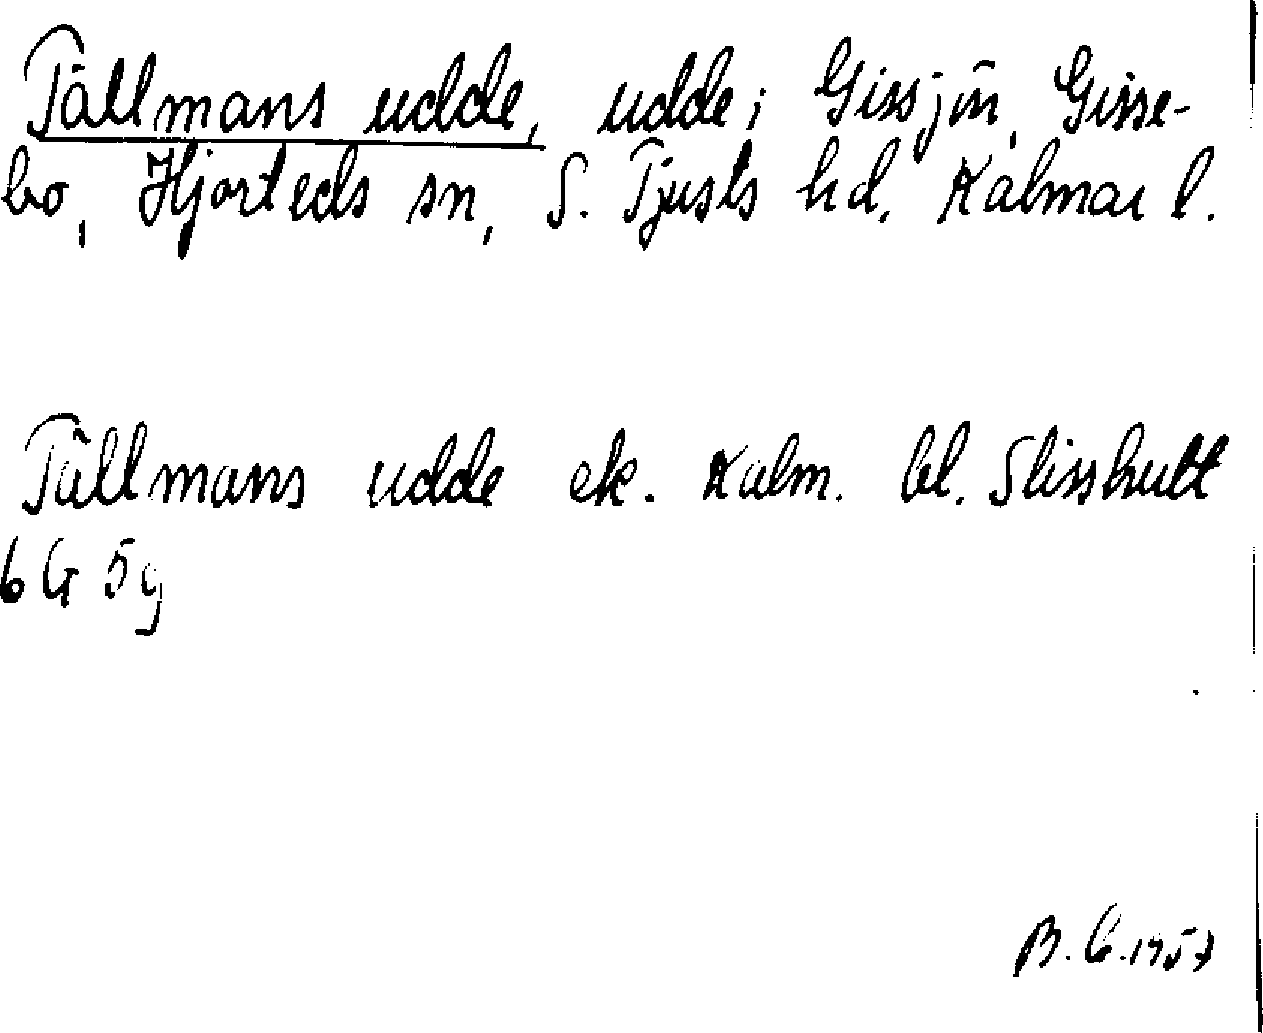 Tällmans udde, udde i Gissjön, Gisse-
bo, Hjorteds sn, S. Tjusts hd. Kalmar l.
Tällmans udde ek. Kalm. bl. Slisshult
6 G 5 g
B. C. 1957